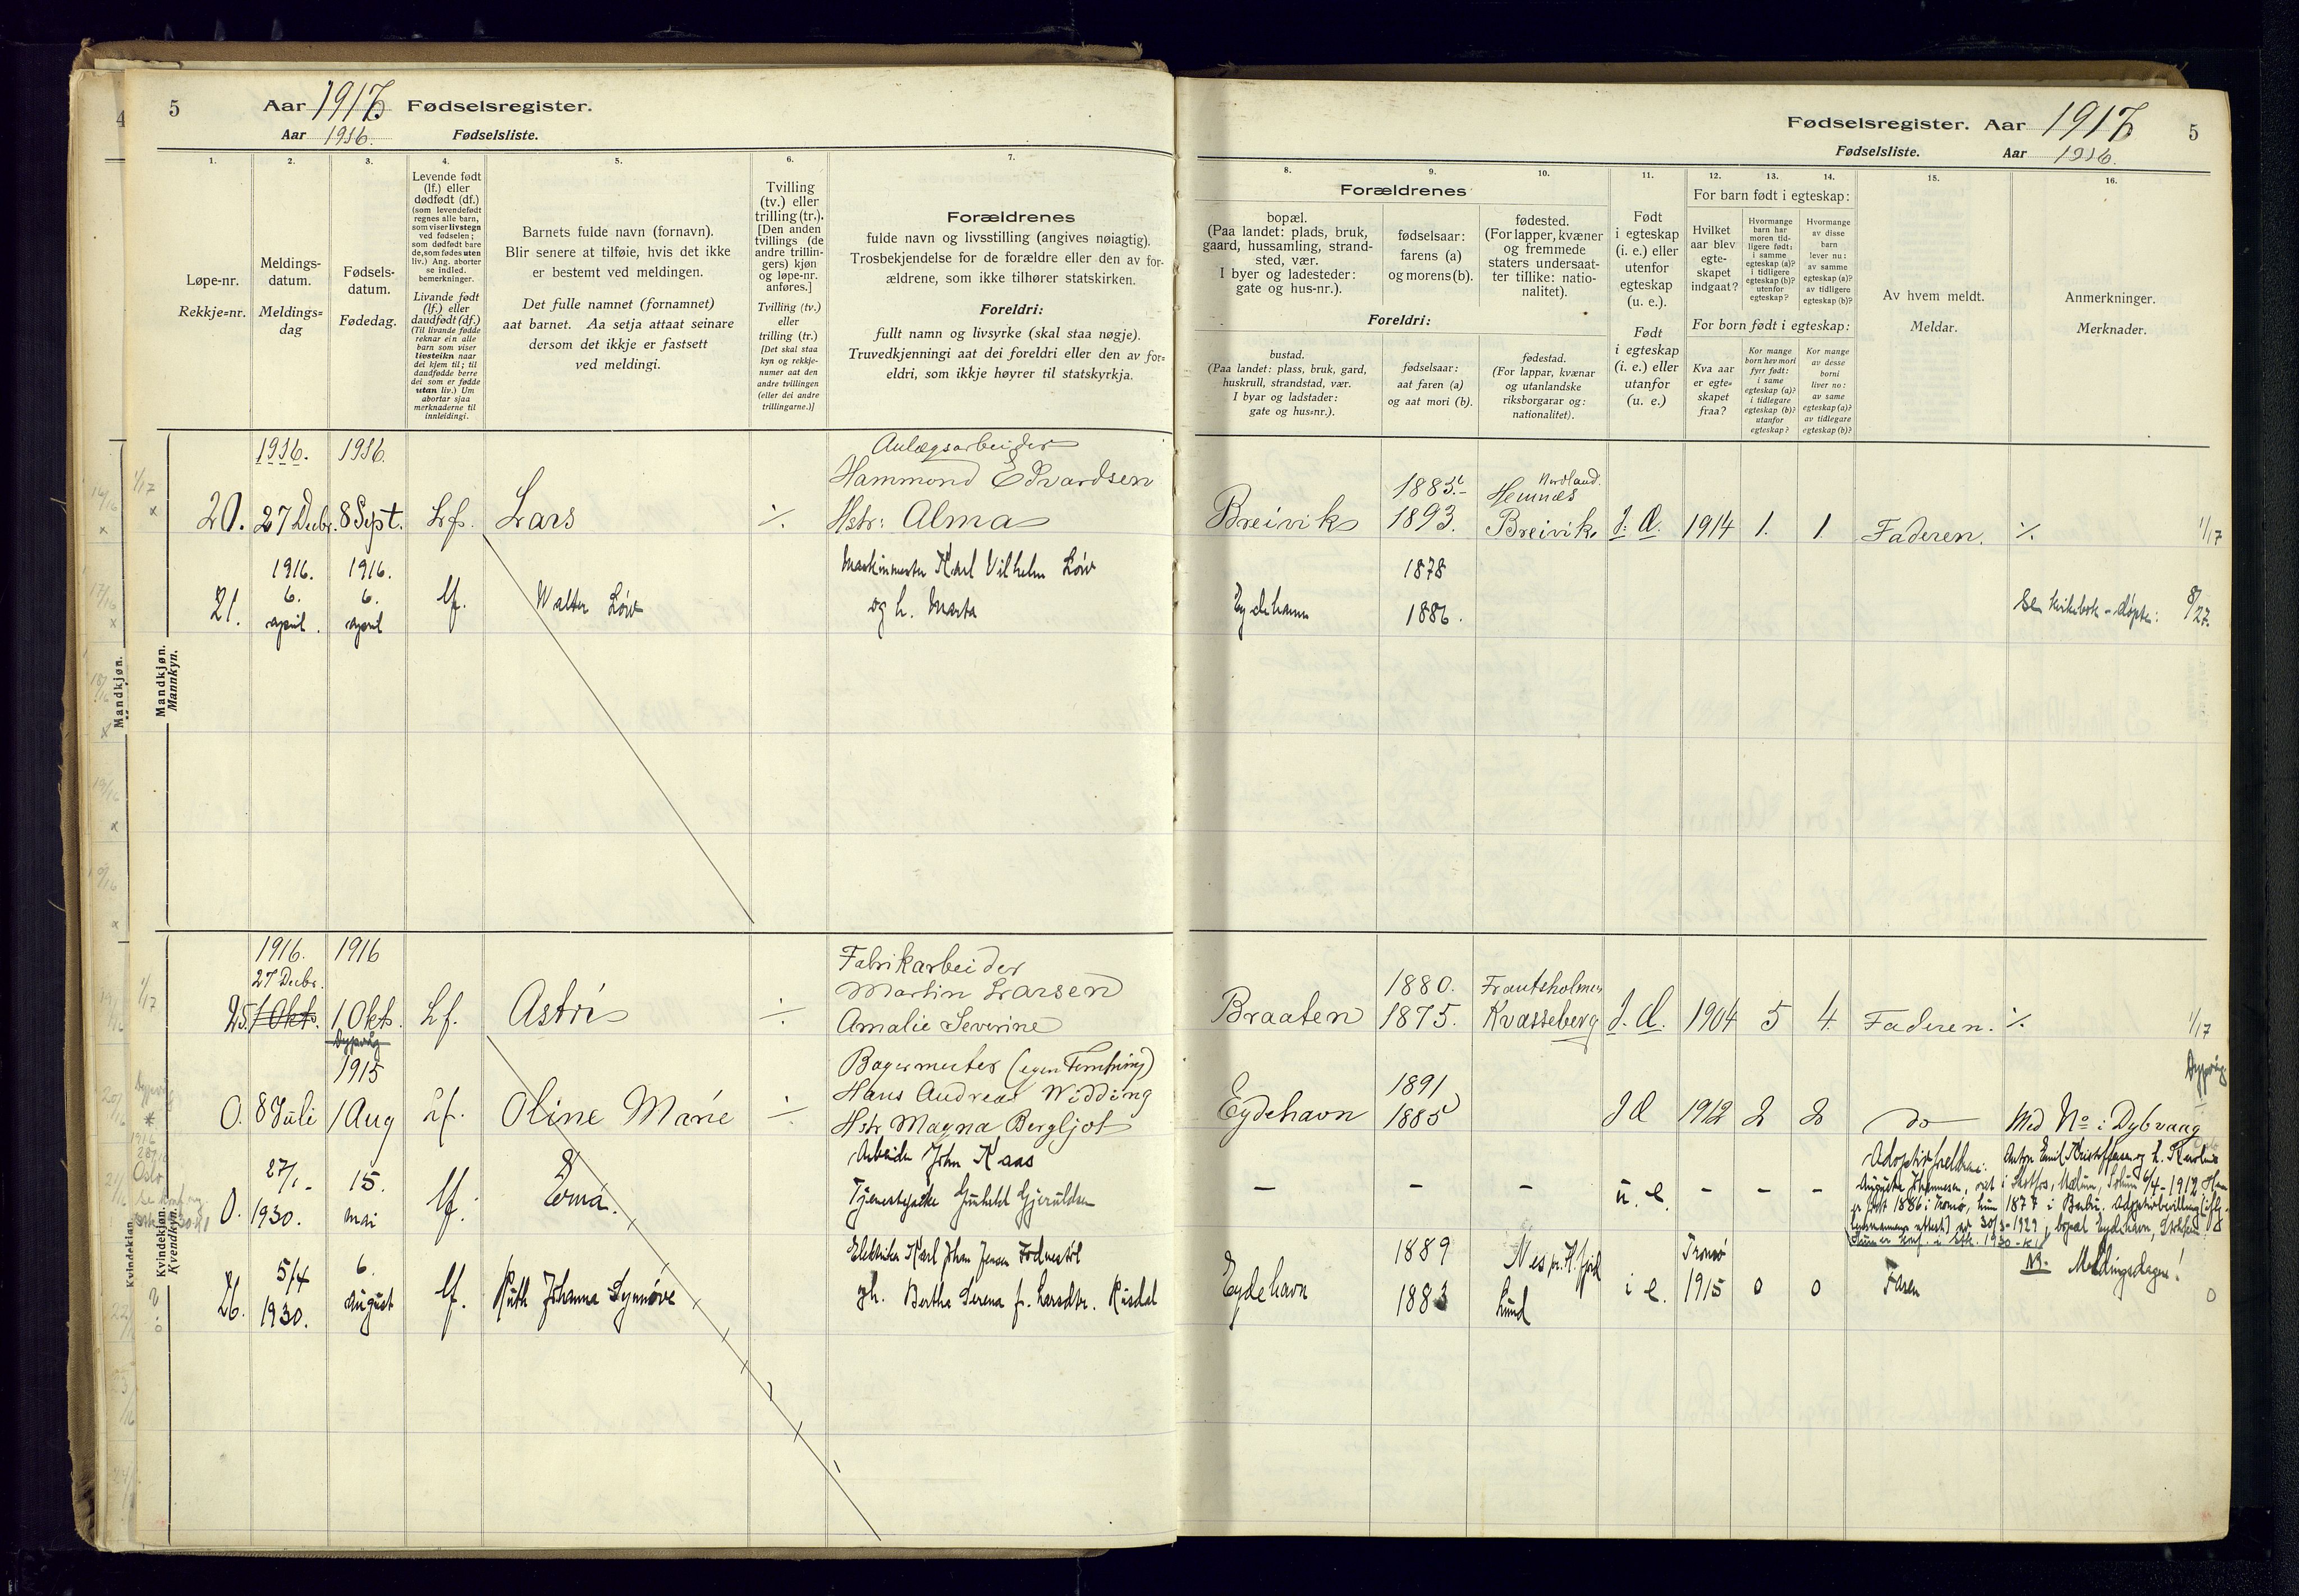 5 Aar 1917 Fødselsregister.
Aar 1916. Fødselsliste.
Fødselsregister. Aar 1917 5
Fødselsliste. Aar 1916.
1. 2. 3. 4. 5. 6. 7.
Løpe-nr.
Rekkje=nr.
Meldings-
datum.
Meldings=
dag
Fødsels-
datum.
Fødedag.
Levende født
(lf.) eller
dødfødt (df.)
(som levendefødt
regnes alle barn,
som viser livstegn
ved fødselen;
som dødfødt bare
de, som fødes uten
liv.) Ang. aborter
se indled.
bemerkninger.
Livande født
(lf.) eller
daudfødt (df.)
(Til livande fødde
reknar ein alle
barn som viser
livsteikn naar
dei kjem til; til
daudfødde berre
dei som er fødde
utan liv.) Um
abortar sjaa
merknaderne til
innleidingi.
Barnets fulde navn (fornavn).
Blir senere at tilføie, hvis det ikke
er bestemt ved meldingen.
Det fulle namnet (fornamnet)
aat barnet. Aa setja attaat seinare
dersom det ikkje er fastsett
ved meldingi.
Tvilling
(tv.) eller
trilling (tr.).
[Den anden
tvillings (de
andre trillin-
gers) kjøn
og løpe-nr.
anføres.]
Tvilling (tv.)
eller
trilling (tr.)
[Det skal staa
kyn og rekkje-
numer aat den
andre tvillingen
(eller dei andre
trillingarne.)]
Forældrenes
fulde navn og livsstilling (angives nøiagtig).
Trosbekjendelse for de forældre eller den av for-
ældrene, som ikke tilhører statskirken.
Foreldri:
fullt namn og livsyrke (skal staa nøgje).
Truvedkjenningi aat dei foreldri eller den av for=
eldri, som ikkje høyrer til statskyrkja.
8. 9. 10. 11. 12. 13. 14. 15. 16.
Forældrenes
bopæl.
(Paa landet: plads, bruk,
gaard, hussamling, strand-
sted, vær.
I byer og ladesteder:
gate og hus-nr.).
fødselsaar:
farens (a)
og morens (b).
fødested.
(For lapper, kvæner
og fremmede
staters undersaat-
ter tillike: natio-
nalitet).
Foreldri:
bustad.
(Paa landet: plass, bruk, gard,
huskrull, strandstad, vær.
I byar og ladstader:
gate og hus=nr.).
fødselsaar:
aat faren (a)
og aat mori (b).
fødestad.
(For lappar, kvænar
og utanlandske
riksborgarar og:
nationalitet).
Født
i egteskap
(i. e.) eller
utenfor
egteskap
(u. e.).
Født
i egteskap
(i. e.) eller
utanfor
(u. e.)
For barn født i egteskap:
Hvilket
aar blev
egte-
skapet
indgaat?
Hvormange
barn har
moren tid-
ligere født:
i samme
egteskap (a)?
i tidligere
egteskap (b)?
utenfor
egteskap?
Hvormange
av disse
barn
lever nu:
av samme
egteskap (a)?
av tidligere
egteskap (b)?
For born født i egteskap:
Kva aar
er egte=
skapet
fraa?
Kor mange
born hev mori
fyrr født:
i same
egteskap (a)?
i tidlegare
egteskap (b)?
utanfor
egteskap?
Kor mange
av desse
borni
liver no:
av same
egteskap (a)?
av tidlegare
egteskap (b)?
Av hvem meldt.
Meldar.
Anmerkninger.
Merknader.
Mandkjøn.
Mannkyn.
1916. 1916. Anlægsarbeider
Hammond Edvardsen 1885. Nordland. Hemnæs
20. 27 Decbr. 8 Sept. Lf. Lars ·/. Hstr: Alma Breivik 1893. Breivik. I. E. 1914 1. 1 Faderen. ·/. 1/17
1916. 1916. Maskinmester Karl Vilhelm Löw 1878
21. 6. april. 6. april lf. Walter Löw og h. Marta Eydehavn 1886. Se kirkebok - døpte: 8/27.
Kvindekjøn.
Kvendkyn.
1916. 1916 Fabrikarbeider
27 Decbr. Martin Larsen 1880. Frautsholmen
25. 1 Okt. 1 Okt. Lf. Astri ÷ Amalie Severine Braaten 1875. Kvasseberg I. E. 1904 5 4. Faderen. ·/. 1/17
Dypvåg
1915 Bagermester (egen Forretning)
Hans Andreas Widding 1891 Dypvåg
0. 8 Juli 1 Aug Lf. Oline Marie ÷ Hstr Magna Bergljot Eydehavn 1885 I E 1912 2 2 do Med No i Dybvaag
27/1 - 1930. 0. 15. mai lf. Erna. Arbeider John Kaas
Tjenestepike Gunhild Gjeruldsen - - - u. e. - - -
Adoptivforeldre: Anton Emil Kristoffersen og h. Karoline
Auguste Johannesen, viet i Skotfos, Melum, Solum 6/4-1912 Han
er født 1886 i Tromø, hun 1877 i Berlin. Adopsjonsbevilling
30/3-1929, bopæl Eydehavn, Stokken.
Hun er konf. i Stk. 1930
Elektriker Karl Johan Jensen Fodnestöl 1889 Nes pr. Kr.fjord Tromø NB. Meldingsdagen!
26. 5/4 1930. 6. august lf. Ruth Johanna Synnöve gh. Bertha Serena f. Larsdtr. Rusdal Eydehavn 1883 Lund i e. 1915 0 0 Faren 0